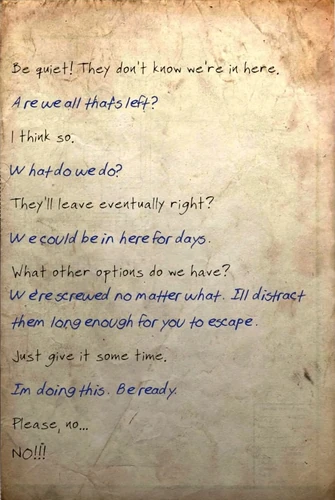 Be quiet! They don't know we're in here.
Are we all that's left?
I think so.
What do we do?
They'll leave eventually right?
We could be in here for days.
What other options do we have?
We're screwed no matter what. I'll distract
them long enough for you to escape.
Just give it some time.
I'm doing this. Be ready.
Please, no...
NO!!!